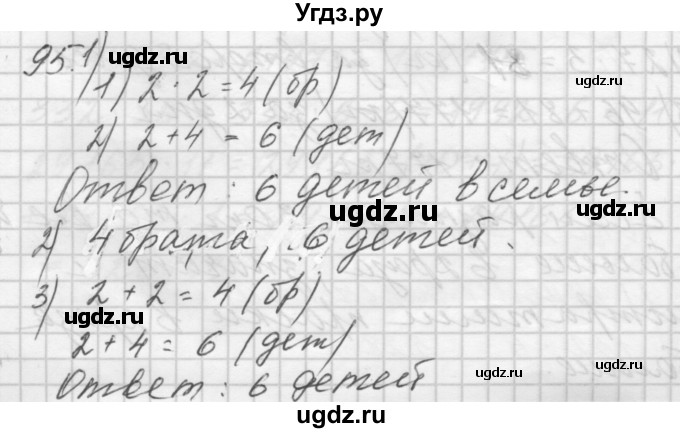 Угдз.ру
95.1)
1) 2 · 2 = 4 (бр)
ugdz.ru
ugdz.ru
2) 2 + 4 = 6 (дет)
Ответ: 6 детей в семье.
ugdz.ru
ugdz.ru
2) 4 брата, 6 детей.
3) 2 + 2 = 4 (бр)
ugdz.ru
2 + 4 = 6 (дет)
ugdz.ru
ugdz.ru
Ответ: 6 детей
ugdz.ru